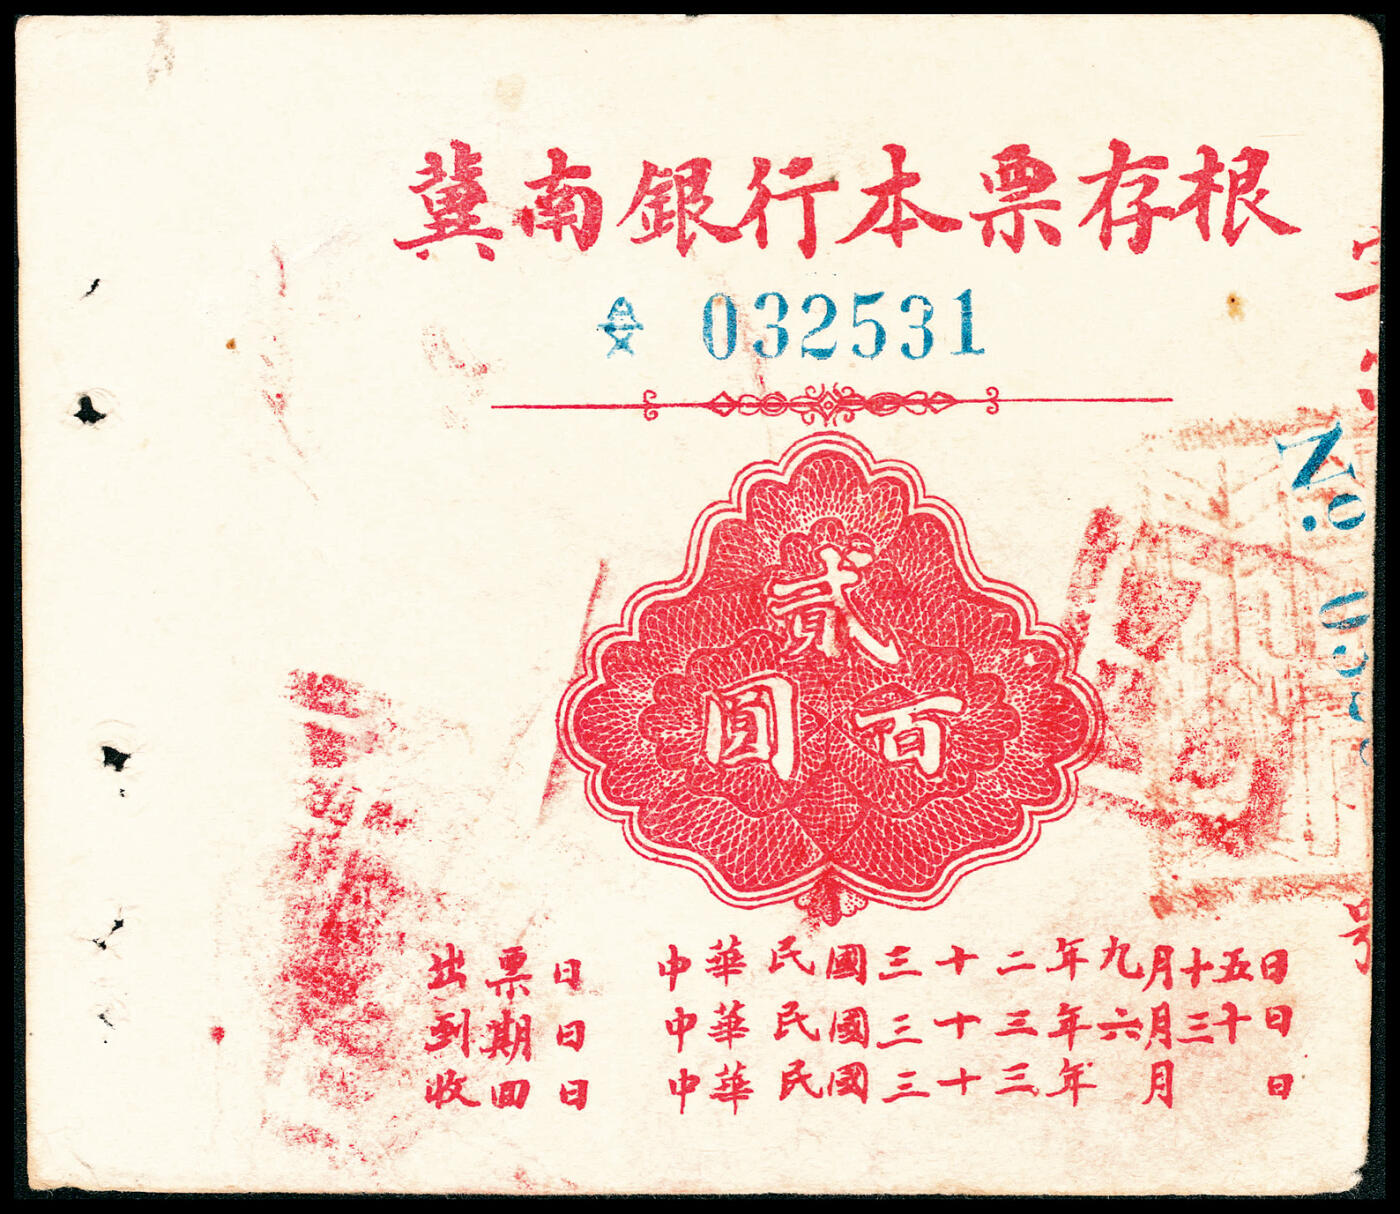 冀南銀行本票存根
032531
貳百圓
出票日 中華民國三十二年九月十五日
到期日 中華民國三十三年六月三十日
收回日 中華民國三十三年 月 日
No 0